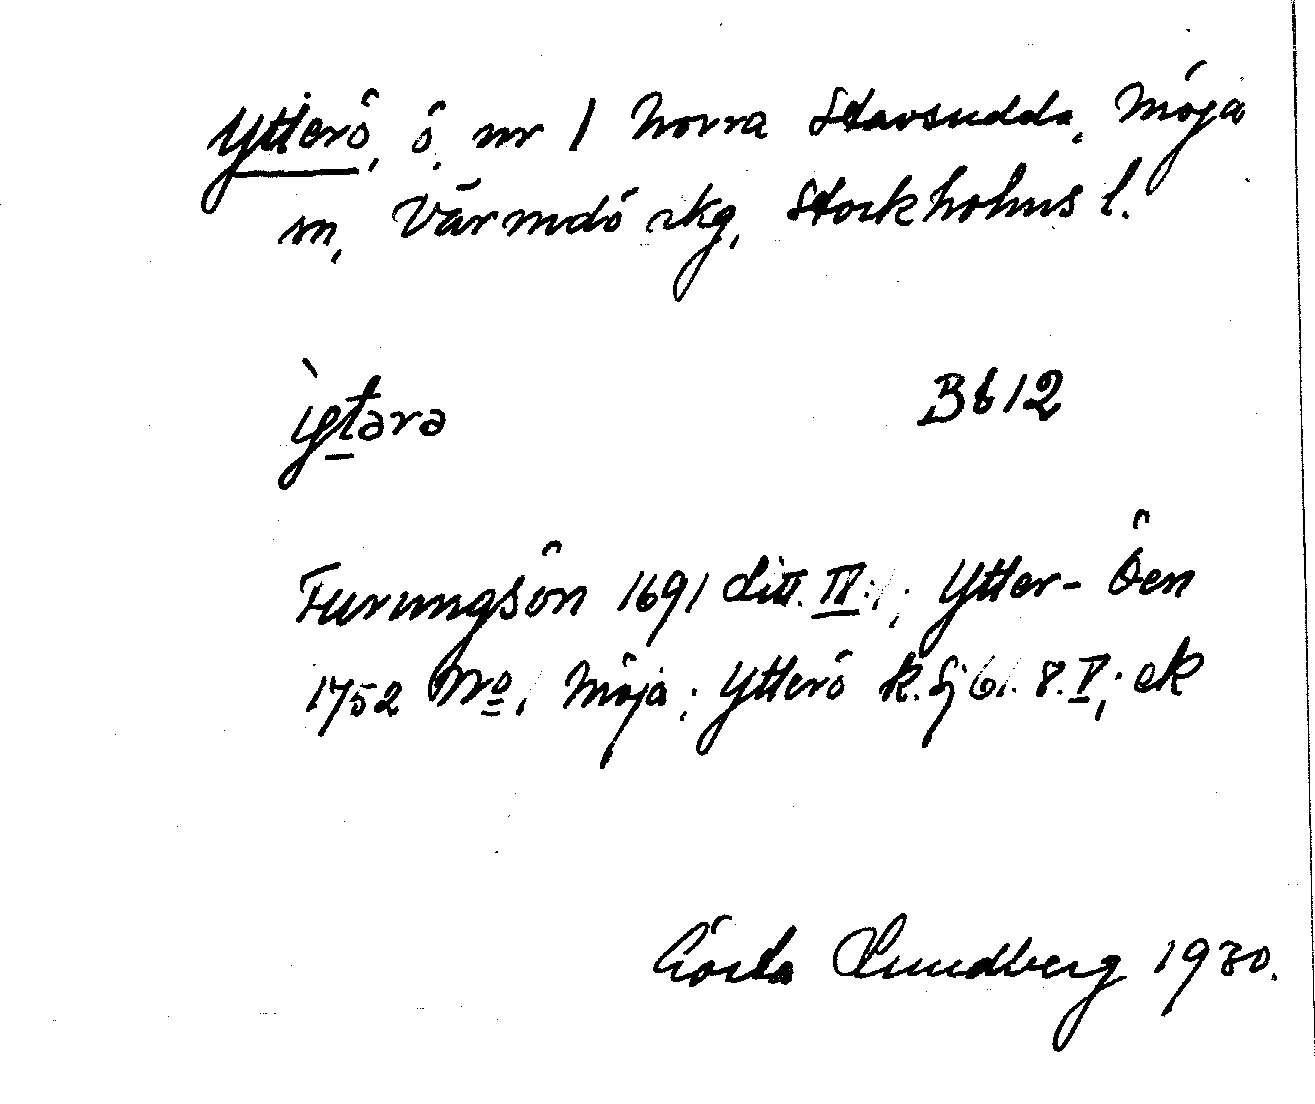 Ytterö, ö, nr 1 Norra Stavsudda, Möja
sn, Värmdö skg, Stockholms l.
ỳtərə B612
Furungsön 1691 Litt. IV:1; Ytter-Öen
1752 No 1 Möja; Ytterö k. Sj 61. 8.V; ek
Gösta Lundberg 1930.